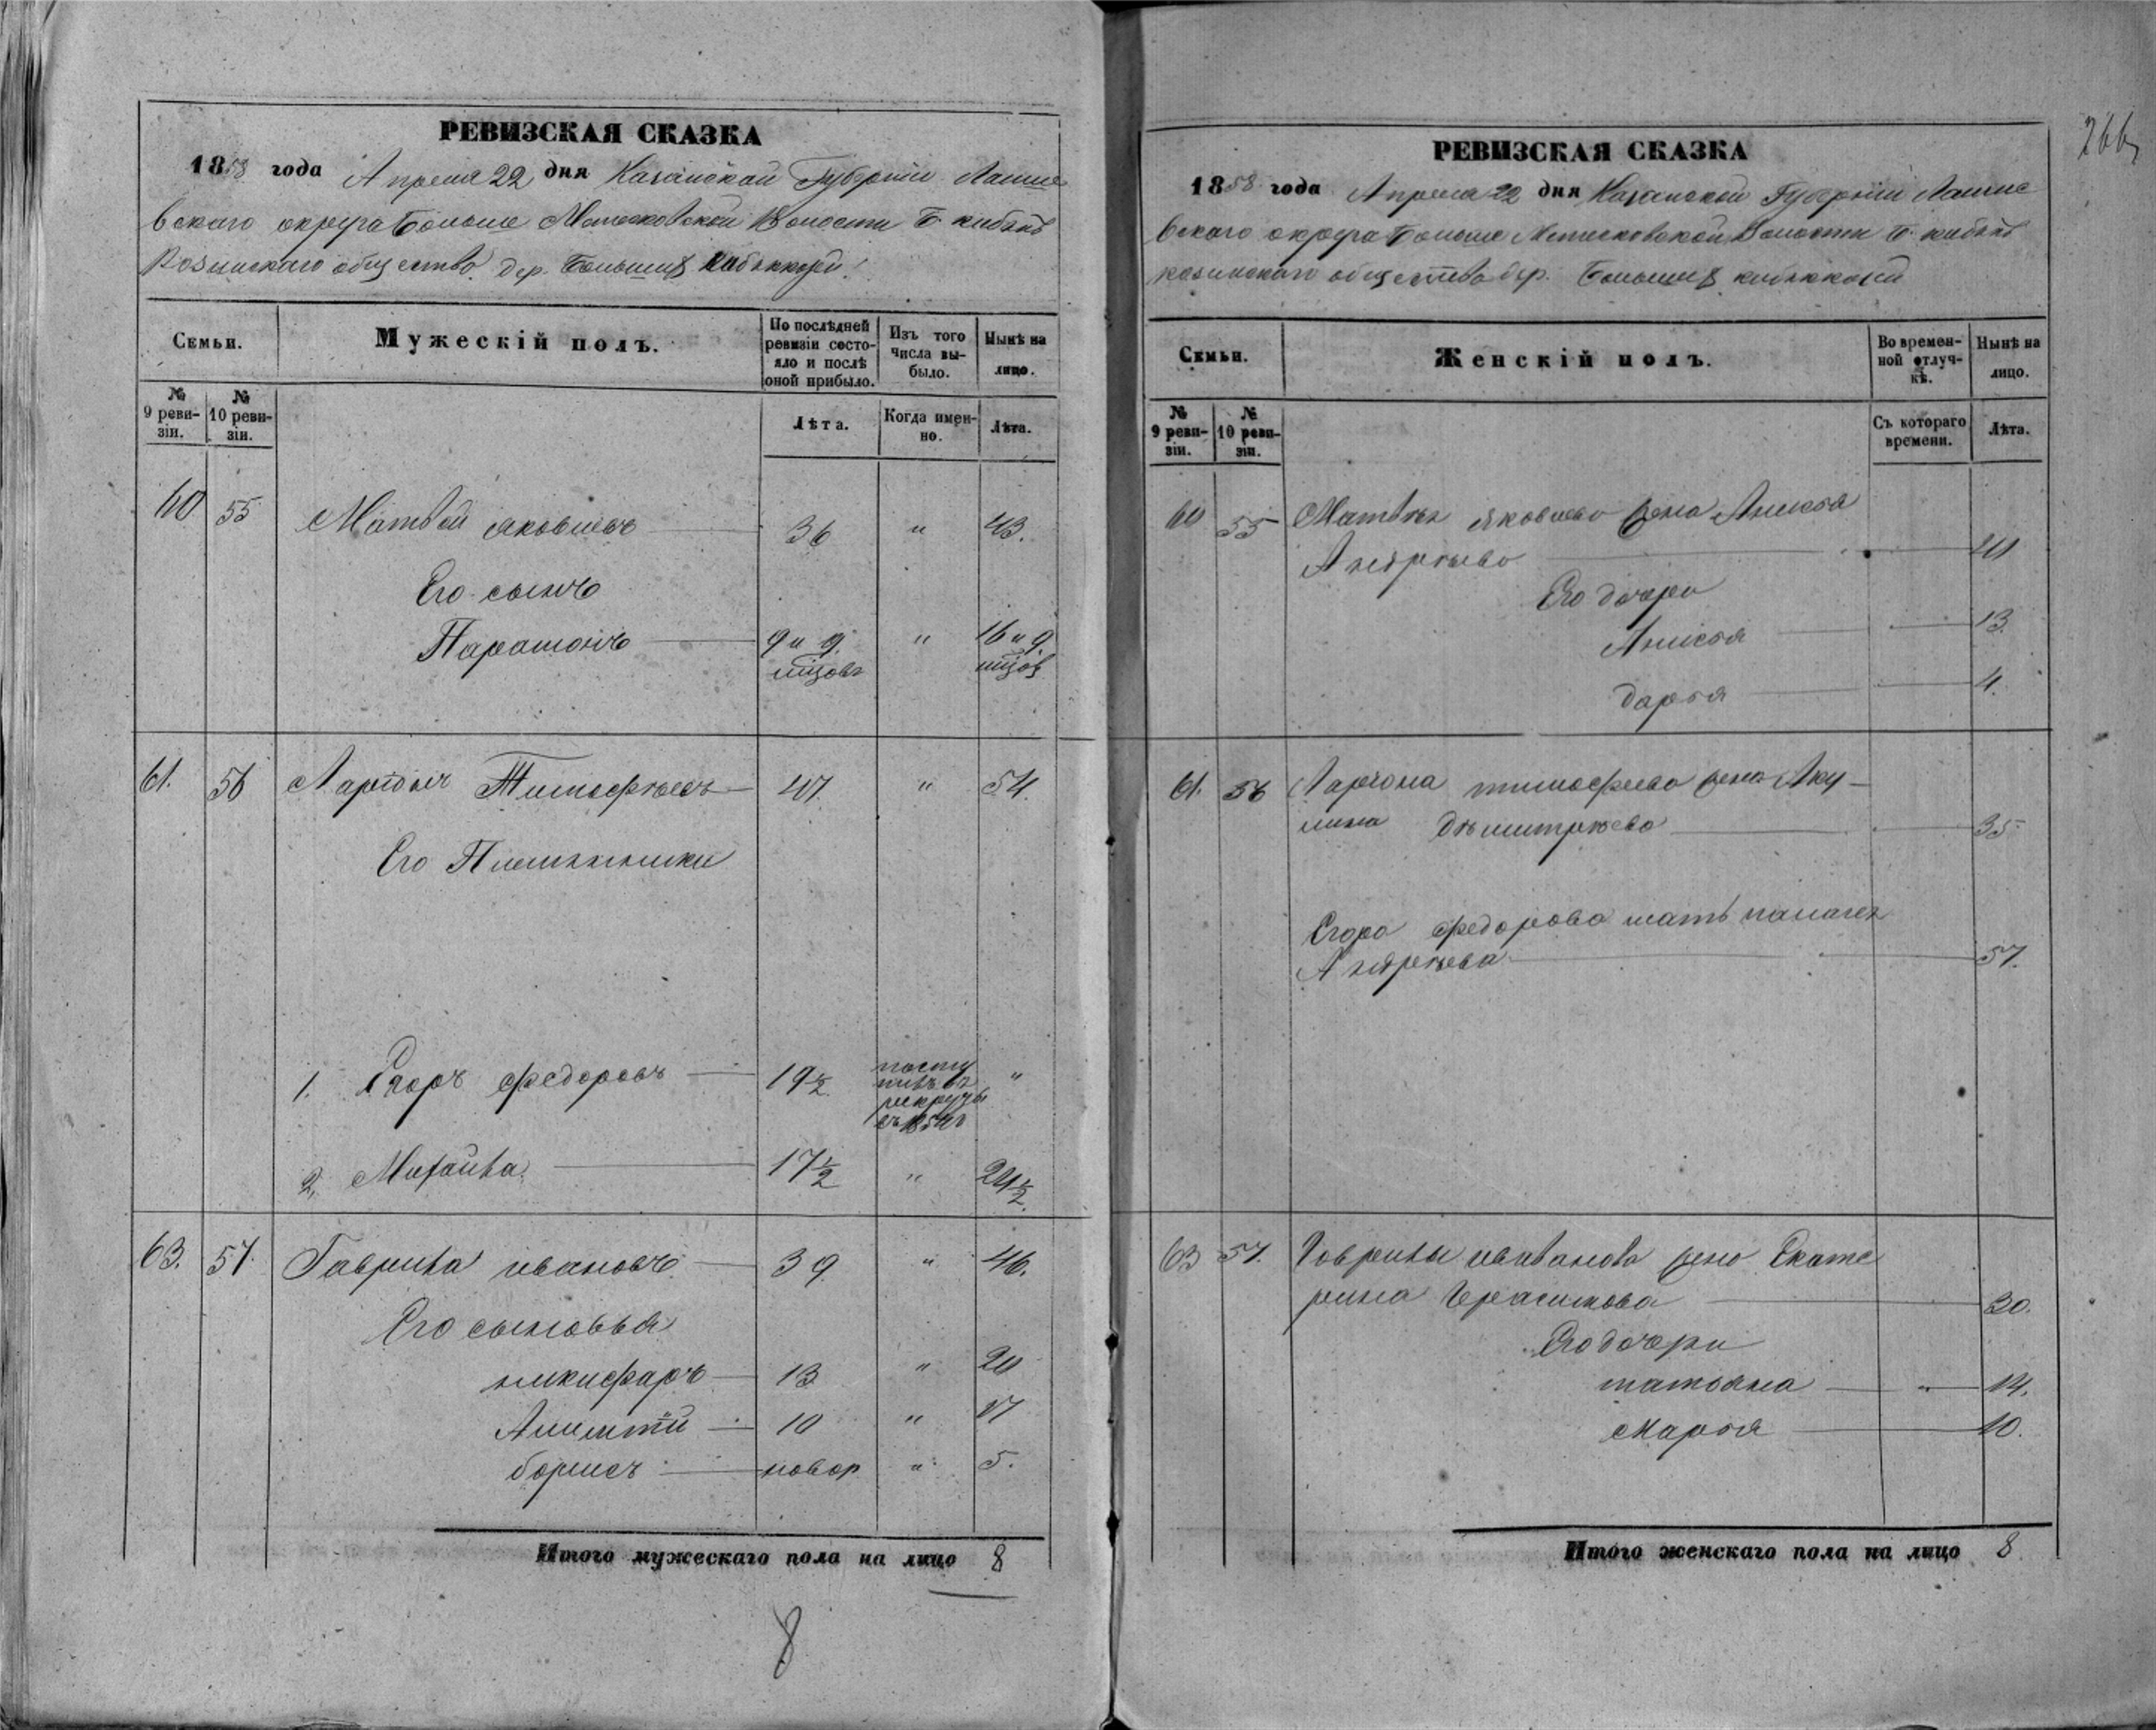 РЕВИЗСКАЯ СКАЗКА
1858 года Апреля 22 дня Казанской Губернии Лаише
вскаго округа Больше Метесковской Волости Б. кибякъ
Козинскаго общество дер. Большихъ Кибяккозей
Семьи.
Мужескій полъ.
По послѣдней ревизіи состояло и послѣ оной прибыло.
Изъ того числа выбыло.
Нынѣ на лицо.
№ 9 ревизіи.
№ 10 ревизіи.
Лѣта.
Когда именно.
Лѣта.
60 55 Матвей яковлевъ 36 " 43.
Его сынъ
Парамонъ 9 и 9. " 16 и 9
мцовъ мцов
61. 56 Ларіонъ Тимофѣевъ 47. " 54.
Его Племянники
1. Егоръ федоровъ 19½ посту "
пилъ въ
рекруты
въ 1854г
2, Михайла 17½ " 24½
63. 57. Гаврила ивановъ 39 " 46.
Его сыновья
никифаръ 13 " 20
10 " 17
борисъ новор " 5.
Итого мужескаго пола на лицо 8
8
266
РЕВИЗСКАЯ СКАЗКА
1858 года Апреля 22 дня Казанской Губерніи Лаише
вскаго округа Больше Метесковской Волости Б. кибякъ
козинскаго общества дер. Большихъ кибяккозей
Семьи.
Женскій полъ.
Во временной отлучкѣ.
Нынѣ на лицо.
№ 9 ревизіи.
№ 10 ревизіи.
Съ котораго времени.
Лѣта.
60 55 Матвѣя яковлева жена Анисья
Андрѣева 40
Его дочери
Анисья 13.
дарья 4.
61. 56 Ларіона тимофеева жена Аку-
лина Дѣмитрѣева 35
Егора федорова мать палагея
Андрѣева 57.
63 57. Гаврилы иванова жена Екате
рина Герасимова 30.
Его дочери
татьяна " 14.
марья 10.
Итого женскаго пола на лицо 8.